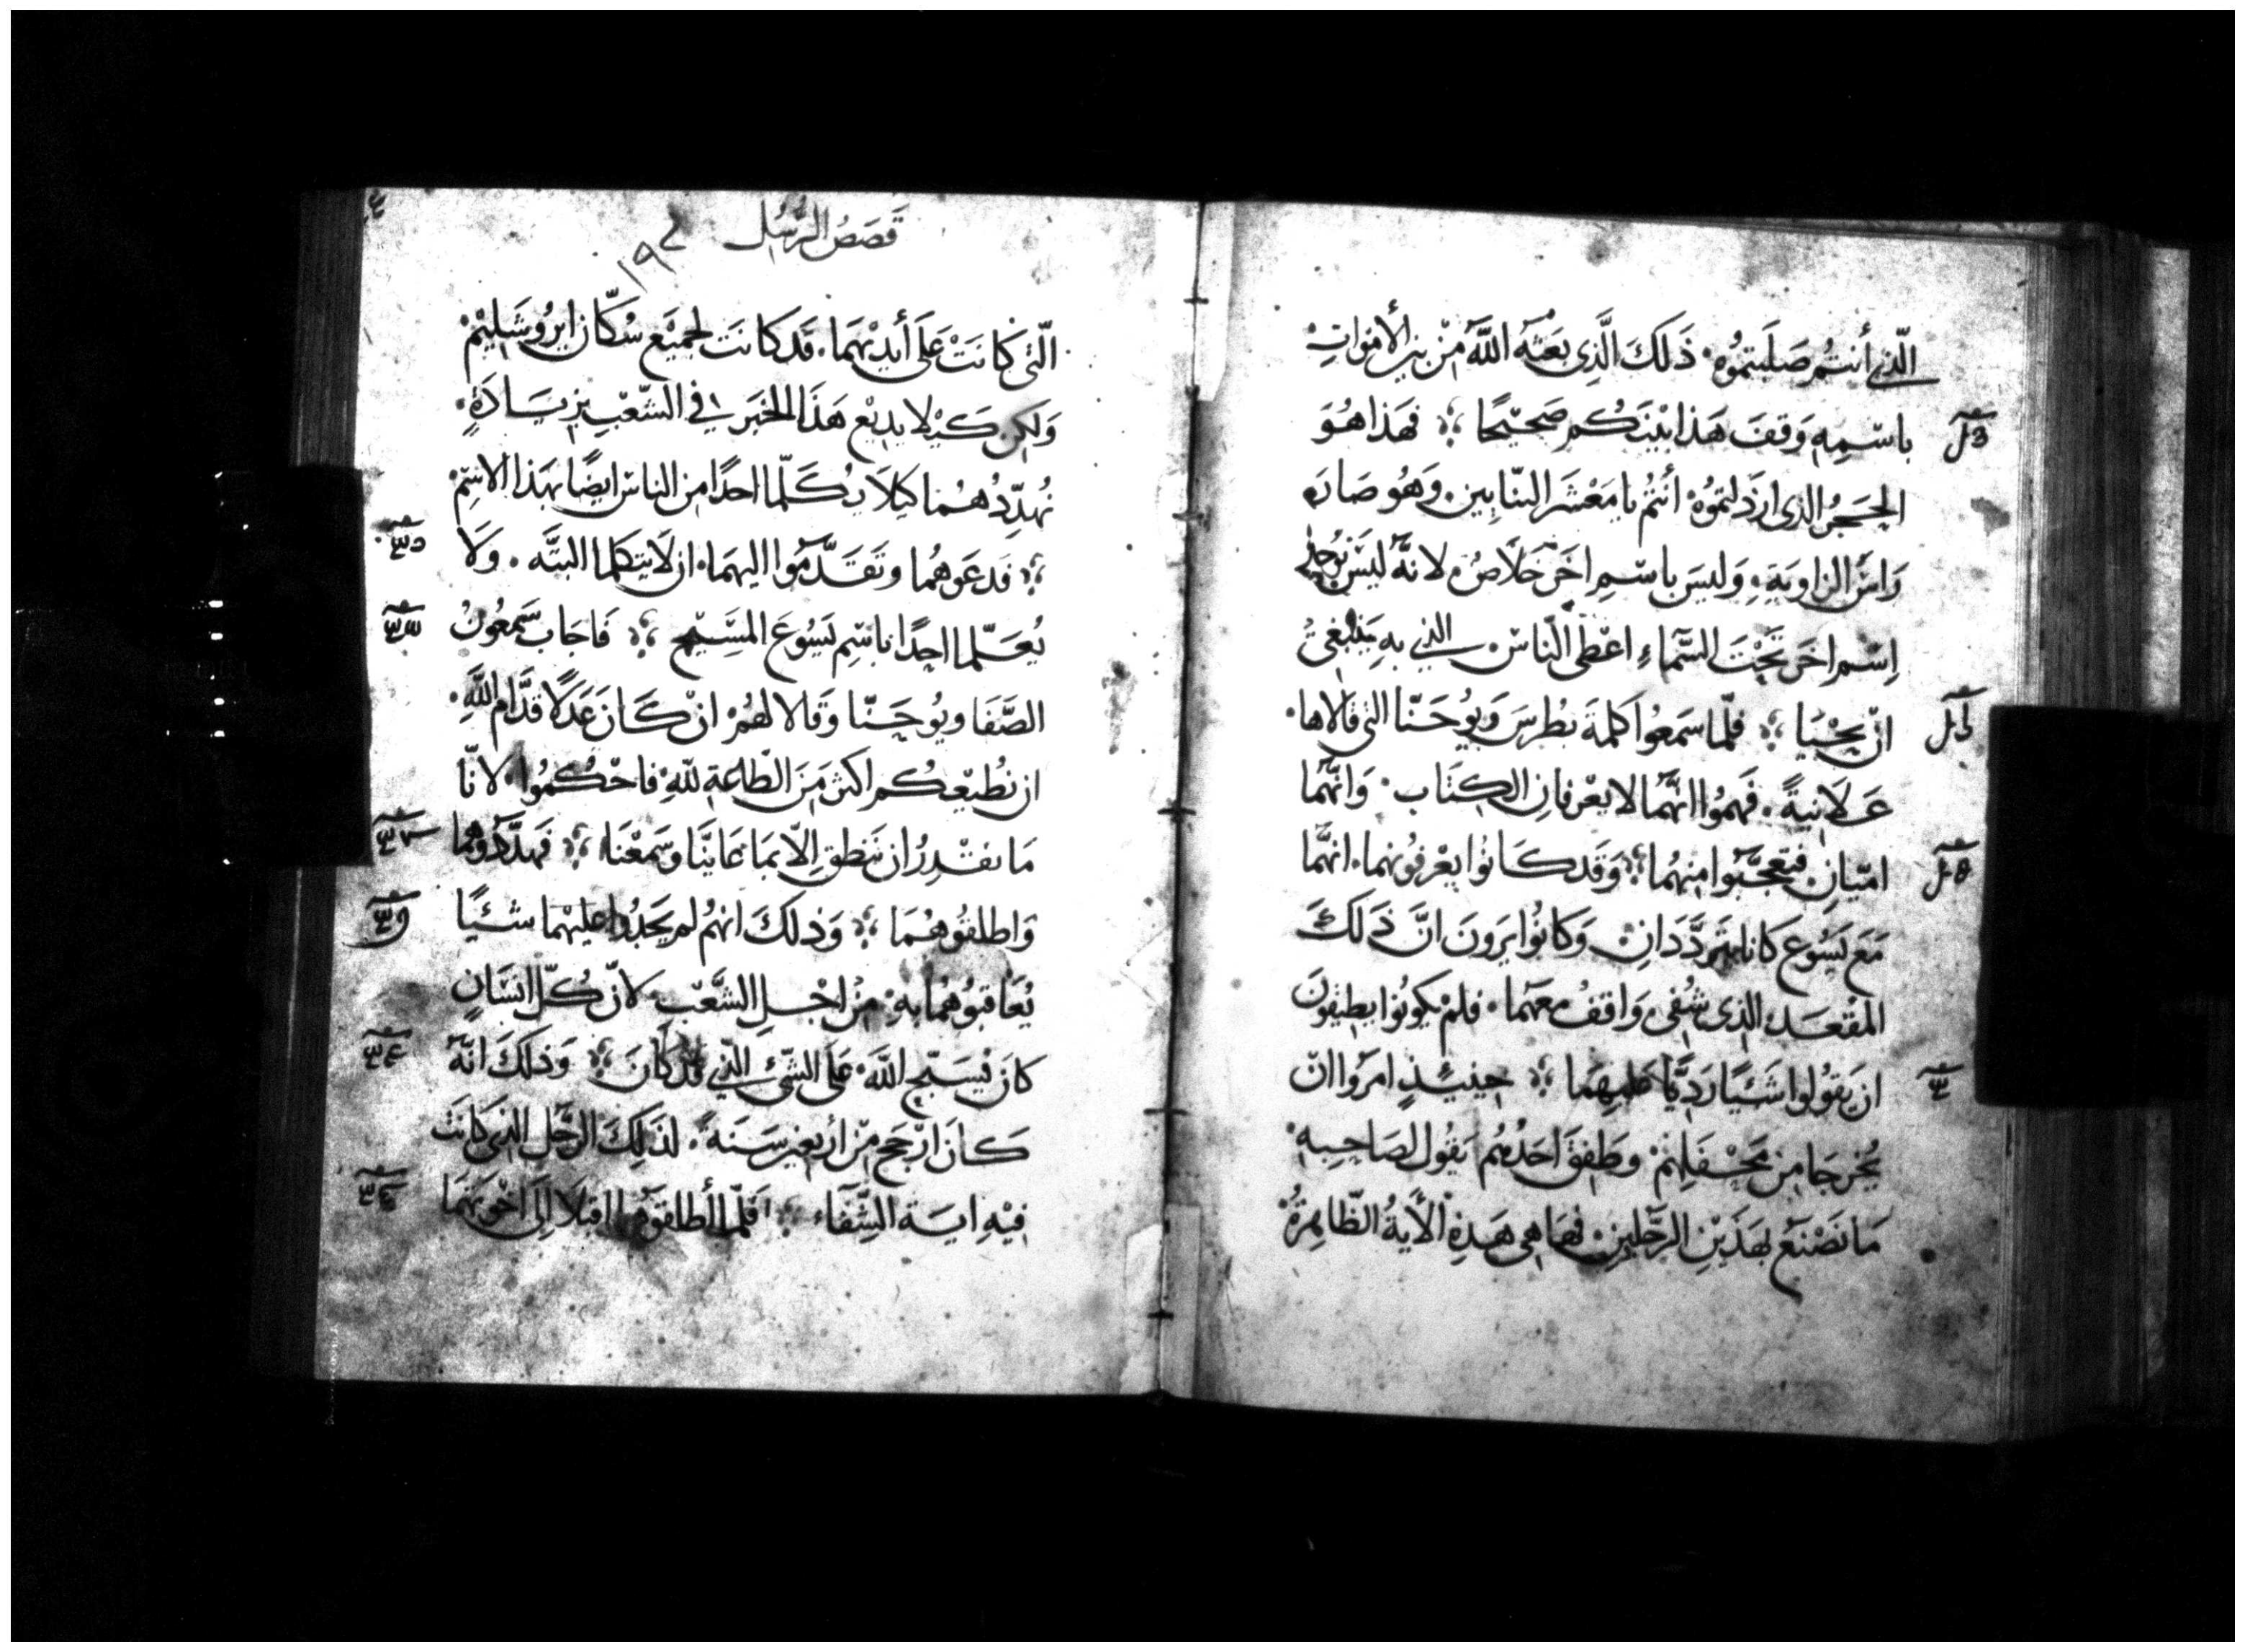 الّذي أنتُم صَلَبتموُه. ذَلكَ الَّذِى بَعَثَه اللَّه مِنْ بين الأمْوَاتِ
باسْمِهِ وَقفَ هَذا بَيْنَكُم صَحيْحًا ؞ فهَذا هُوَ
الحَجَرُ الذى ارْذَلتموُهُ أنتُم يا مَعْشَرَ البَنّايين. وَهُو صَارَ
رَاسَ الزاويَةِ. وَليسَ باسْمِ اخَرَ خَلَاصُ. لانهُ ليسَ يُوجد
اِسْمٌ اخَر تَحْتَ السَّماءِ اعْطى النّاسْ الذي بهِ يَنبَغىُ
انْ يحْيَا ؞ فلمّا سَمَعُوا كلمةَ بطرسَ وَيُوحَنّا التى قالاها.
عَلَانِيةً. فَهمُوا انهُّما لا يعْرفانِ الكِتَاب. وَانهُّما
امّيّانِ. فتعجَّبُوا منهُما ؞ وَقَد كانُوا يعْرفُونهما. انهُّما
مَعَ يَسُوع كانا يتردَّدَانِ. وَكانُوا يَرَونَ انَّ ذَلكَ
المقْعَد الذى شُفى. وَاقفُ معَهما. فلمْ يكونُوا يطيقُونَ
ان يَقُولوا شَيْئًا رَديًّا عَليهِمَا ؞ حينئِذٍ امَرُوا انْ
يُخرجَا من مَحْفَلِهمْ وطَفِقَ احَدُهُم يَقُول لصَاحِبِهِ.
مَا نَصْنَع بهَذَيْنِ الرجّلينِ. فهَا هى هَذِهِ الآيةُ الظّاهِرةُ
قَصَصُ الرُّسُل
١٩٢
التّى كانَتْ عَلَى أيديْهمَا. قَد كانَت لجميَع سُكّان ايرُوشَلِيْم.
وَلكِن كَيْلا يديْع هَذَا الخبَر في الشّعْبِ بزيَادَةٍ.
نُهدِّدُهُما كيلَا يُكَلّما احدًا من الناسْ ايضًا بهَذا الاسْمْ
؞ فدعَوهُما وتَقَدّمُوا اليهمَا. ان لَا يتكلما البتَّه. وَلَا
يُعَلّما احدًا باسْمِ يَسُوعَ المسِّيح ؞ فَاجَابَ سَمعُونُ
الصَّفَا ويُوحَنّا وَقالا لهُمْ. انْ كَانَ عَدَلًا قدَّام اللَّهِ.
ان نُطيْعكُم اكثر مَنَ الطّاعةِ للّهِ فاحْكُمُوا. لانّا
مَا نقْدِرُ ان نَنطق الّا بمَا عَاينَّا وَسَمعْنَا ؞ فَهدّدُوهُما
وَاطلقُوهُمَا ؞ وَذلكَ انهُم لم يَجدُوا عليهْما شيئًا
يُعَاقبُوهُمَا بهِ. مِنْ اجْلِ الشَّعْبِ. لانّ كُلّ انسَانٍ
كان يُسَبّح اللَّه. عَلى الشّئ الذي قد كانَ ؞ وَذلكَ انّهُ
كانَ ارْجَح مِنْ ارْبعين سَنَةً. لذَلكَ الرّجُل الذى كانَتْ
فيْهِ ايَة الشِّفَاء ؞ فَلمّا أطلقوُهُما اقبَلَا اِلى اخْوَتهُمَا